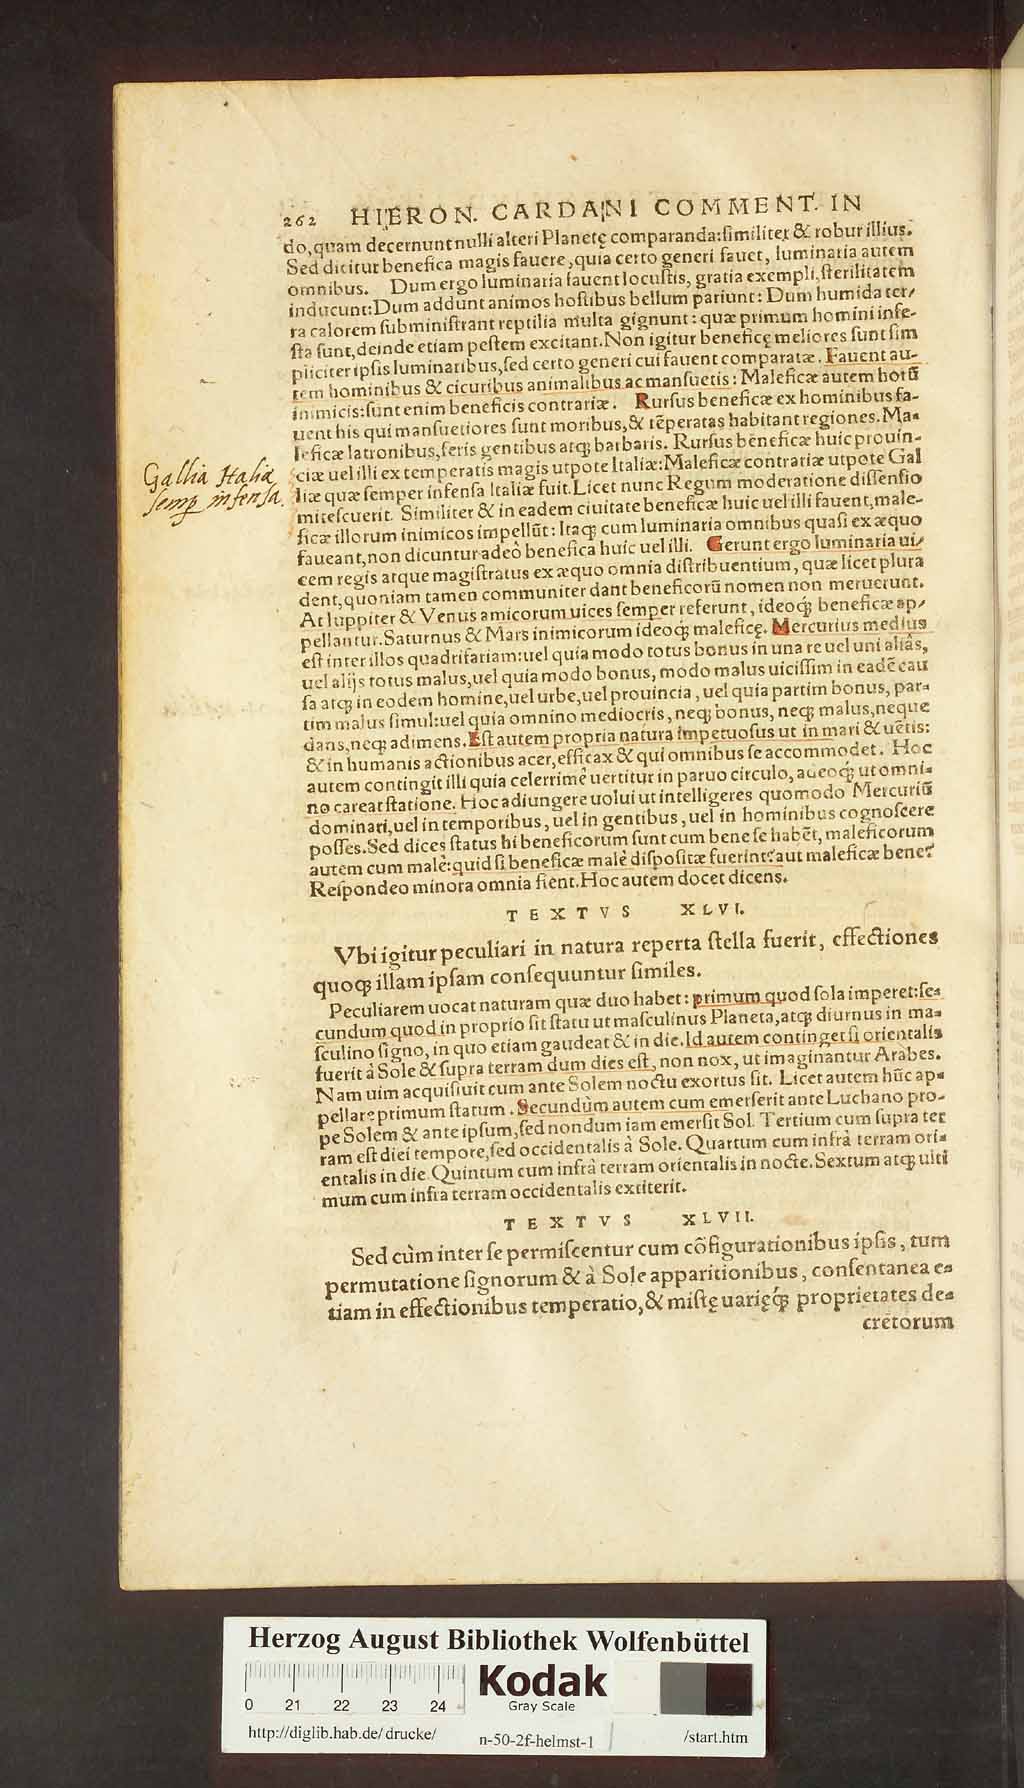 262 HIERON. CARDANI COMMENT. IN
do, quam decernunt nulli alteri Planetę comparanda: ſimiliter & robur illius.
Sed dicitur benefica magis fauere, quia certo generi fauet, luminaria autem
omnibus. Dum ergo luminaria fauent locuſtis, gratia exempli, ſterilitatem
inducunt: Dum addunt animos hoſtibus bellum pariunt: Dum humida ter/
ra calorem ſubminiſtrant reptilia multa gignunt: quæ primum homini infe-
ſta ſunt, deinde etiam peſtem excitant. Non igitur beneficę meliores ſunt ſim
pliciter ipſis luminaribus, ſed certo generi cui fauent comparatæ. Fauent au-
tem hominibus & cicuribus animalibus ac manſuetis: Maleficæ autem horū
inimicis: ſunt enim beneficis contrariæ. Rurſus beneficæ ex hominibus fa-
uent his qui manſuetiores ſunt moribus, & tēperatas habitant regiones. Ma-
leficæ latronibus, feris gentibus atq; barbaris. Rurſus beneficæ huic prouin-
ciæ uel illi ex temperatis magis utpote Italiæ: Maleficæ contrariæ utpote Gal
liæ quæ ſemper infenſa Italiæ fuit. Licet nunc Regum moderatione diſſenſio
Gallia Italiæ
semp infensa.
miteſcuerit. Similiter & in eadem ciuitate beneficæ huic uel illi fauent, male-
ficæ illorum inimicos impellūt: Itaq; cum luminaria omnibus quaſi ex æquo
faueant, non dicuntur adeò benefica huic uel illi. Gerunt ergo luminaria ui/
cem regis atque magiſtratus ex æquo omnia diſtribuentium, quæ licet plura
dent, quoniam tamen communiter dant beneficorū nomen non meruerunt.
At Iuppiter & Venus amicorum uices ſemper referunt, ideoq; beneficæ ap/
pellantur. Saturnus & Mars inimicorum ideoq; maleficę. Mercurius medius
eſt inter illos quadrifariam: uel quia modo totus bonus in una re uel uni aliâs,
uel alijs totus malus, uel quia modo bonus, modo malus uiciſſim in eadē cau
ſa atq; in eodem homine, uel urbe, uel prouincia, uel quia partim bonus, par-
tim malus ſimul: uel quia omnino mediocris, neq; bonus, neq; malus, neque
dans, neq; adimens. Eſt autem propria natura impetuoſus ut in mari & uētis:
& in humanis actionibus acer, efficax & qui omnibus ſe accommodet. Hoc
autem contingit illi quia celerrimè uertitur in paruo circulo, adeoq; ut omni-
no careat ſtatione. Hoc adiungere uolui ut intelligeres quomodo Mercuriū
dominari, uel in temporibus, uel in gentibus, uel in hominibus cognoſcere
poſſes. Sed dices ſtatus hi beneficorum ſunt cum bene ſe habēt, maleficorum
autem cum malè: quid ſi beneficæ malè diſpoſitæ fuerint? aut maleficæ bene?
Reſpondeo minora omnia fient. Hoc autem docet dicens.
TEXTVS XLVI.
Vbi igitur peculiari in natura reperta ſtella fuerit, effectiones
quoq; illam ipſam conſequuntur ſimiles.
Peculiarem uocat naturam quæ duo habet: primum quod ſola imperet: ſe-
cundum quod in proprio ſit ſtatu ut maſculinus Planeta, atq; diurnus in ma-
ſculino ſigno, in quo etiam gaudeat & in die. Id autem continget ſi orientalis
fuerit à Sole & ſupra terram dum dies eſt, non nox, ut imaginantur Arabes.
Nam uim acquiſiuit cum ante Solem noctu exortus ſit. Licet autem hūc ap-
pellare primum ſtatum. Secundùm autem cum emerſerit ante Luchano pro-
pe Solem & ante ipſum, ſed nondum iam emerſit Sol. Tertium cum ſupra ter
ram eſt diei tempore, ſed occidentalis à Sole. Quartum cum infrà terram ori-
entalis in die. Quintum cum infrà terram orientalis in nocte. Sextum atq; ulti
mum cum infra terram occidentalis extiterit.
TEXTVS XLVII.
Sed cùm inter ſe permiſcentur cum cōfigurationibus ipſis, tum
permutatione ſignorum & à Sole apparitionibus, conſentanea e-
tiam in effectionibus temperatio, & miſtę uarięq́; proprietates de-
cretorum
Herzog August Bibliothek Wolfenbüttel
Kodak
Gray Scale
0 21 22 23 24
http://diglib.hab.de/drucke/ n-50-2f-helmst-1 /start.htm